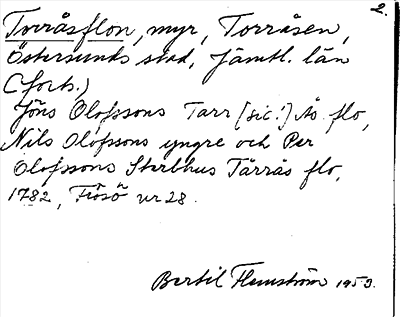 2.
Torråsflon, myr, Torråsen,
Östersunds stad, Jämtl. län
(forts.)
Jöns Olofssons Tarr [sic!] Ås flo,
Nils Olofssons yngre och Per
Olofssons Sterbhus Tårrås flo,
1782, Frösö nr 28.
Bertil Flemström 1953.